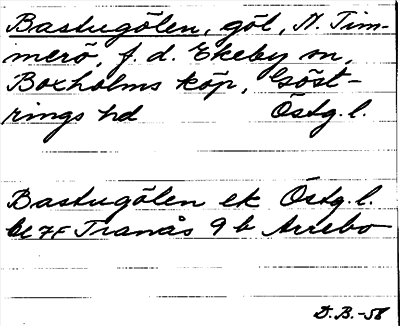 Bastugölen, göl, N. Tim-
merö, f. d. Ekeby sn,
Boxholms köp, Göst-
rings hd Östg. l.
Bastugölen ek Östg. l.
bl 7F Tranås 9 b Arrebo
D.B.-58